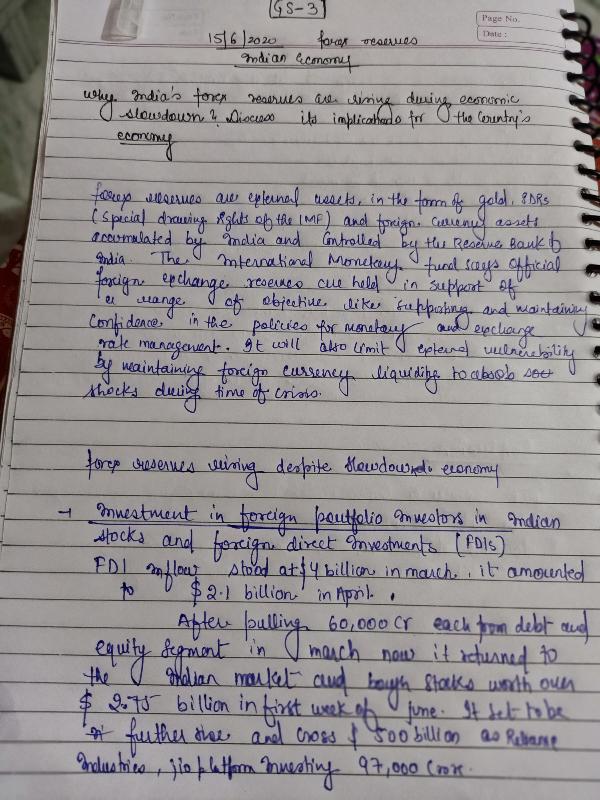 GS-3
Page No.
Date :
15/6/2020 forex reserves
Indian Economy
Why India's forex reserves are rising during economic
slowdown? Discuss its implications for the Country's
economy
forex reserves are external assets, in the form of gold, SDRs
(Special drawing rights of the IMF) and foreign currency assets
accumulated by India and Controlled by the Reserve Bank of
India. The International Monetary fund says official
foreign exchange reserves are held in support of
a range of objective like supporting and maintaining
Confidence in the policies for monetary and exchange
rate management. It will also limit external vulnerability
by maintaining foreign currency liquidity to absorb
shocks during time of crisis.
forex reserves rising despite slowdown economy
→ Investment in foreign portfolio Investors in Indian
stocks and foreign direct Investments (FDIs)
FDI inflow stood at $4 billion in march, it amounted
to $2.1 billion in April.
After pulling 60,000 Cr each from debt and
equity segment in march now it returned to
the Indian market and bough stocks worth over
$ 2.75 billion in first week of june. It set to be
further rise and cross $ 500 billion as Reliance
Industries, jio platform Investing 97,000 Crore.